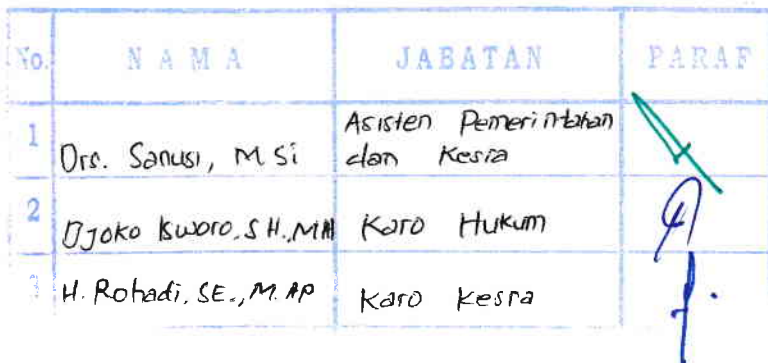 No. NAMA JABATAN PARAF
1 Drs. Sanusi, M Si Asisten Pemerintahan
dan Kesra
2 Djoko Isworo, SH., MH Karo Hukum
3 H. Rohadi, SE., M. AP Karo Kesra